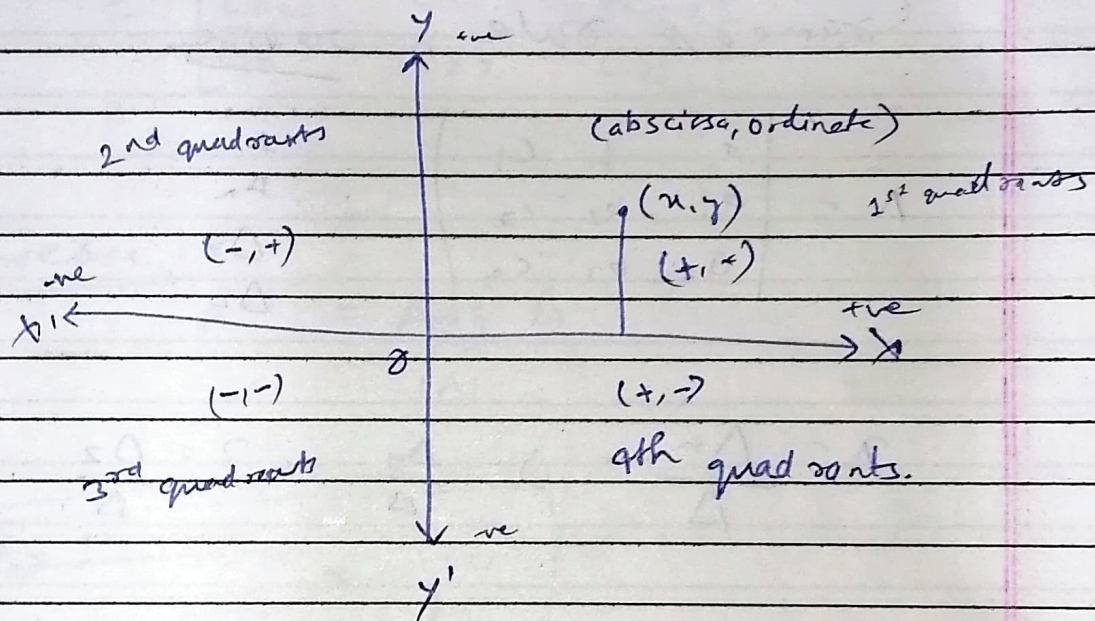 Y +ve
2nd quadrants (abscissa, ordinate)
(x, y) 1st quadrants
(-, +) (+, +)
-ve +ve
X' X
O
(-, -) (+, -)
3rd quadrants 4th quadrants.
-ve
Y'